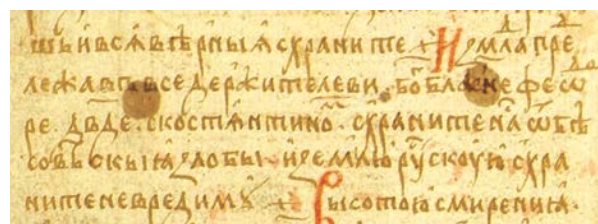 шьи всѧ вѣрныѧ схраните + И умⷧа прⷣе
лежавъ вседержителеви. боⷢбласⷤне феѡⷣо
ре. дв҃де. скостѧнтиноⷨ. схраните нⷭа ѿ бѣ
совьскыꙗ злобы. и землю рꙋскоую схра
ните невредимꙋ + Высотою смиреник.